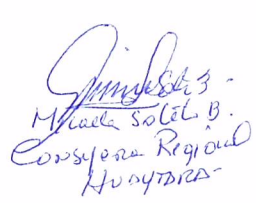 Micaela Solís B.
Consejera Regional
HUAYTARA-